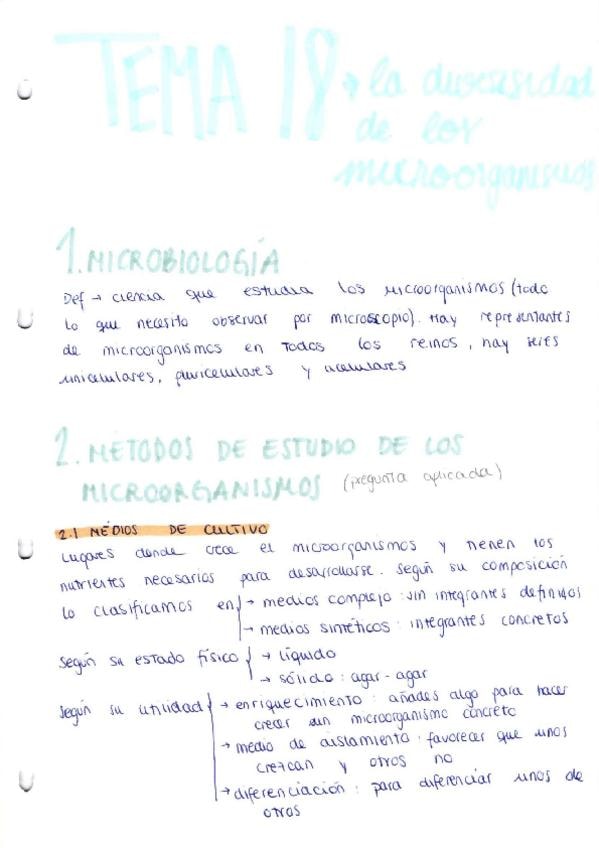 TEMA 18 → la diversidad
de los
microorganismos
1. MICROBIOLOGÍA
Def → ciencia que estudia los microorganismos (todo
lo que necesito observar por microscopio). Hay representantes
de microorganismos en todos los reinos, hay seres
unicelulares, pluricelulares y acelulares
2. MÉTODOS DE ESTUDIO DE LOS
MICROORGANISMOS (pregunta aplicada)
2.1 MÉDIOS DE CULTIVO
Lugares donde crece el microorganismos y tienen los
nutrientes necesarios para desarrollarse. Según su composición
lo clasificamos en → medios complejo: sin integrantes definidos
→ medios sintéticos: integrantes concretos
Según su estado físico → líquido
→ sólido: agar-agar
Según su utilidad → enriquecimiento: añades algo para hacer
crecer un microorganismo concreto
→ medio de aislamiento: favorecer que unos
crezcan y otros no
→ diferenciación: para diferenciar unos de
otros